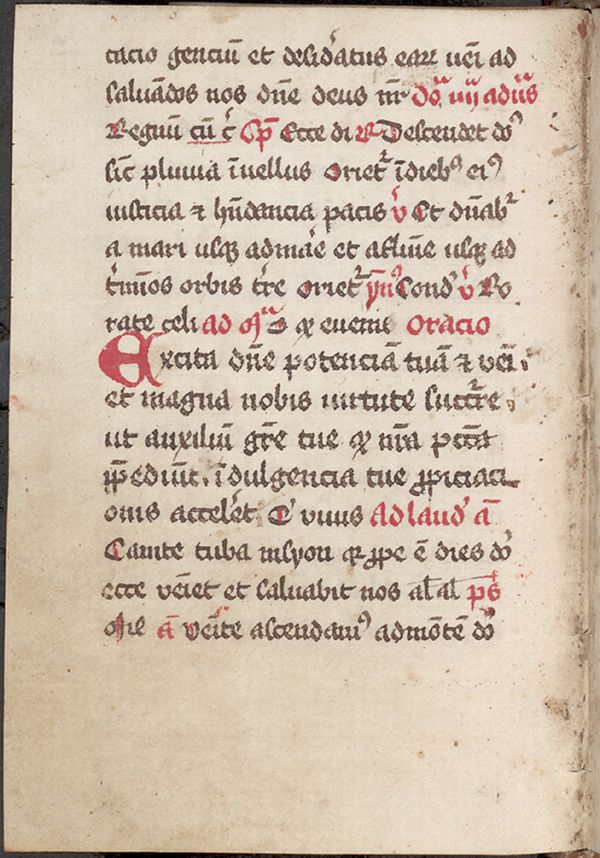 tacio genciū et desid̾atus eaꝝ uēi ad
saluādos nos dn̄e deus nr̄ Do᷑ iiij aduēs
Regnū cū c̄ Sp̄ Ecce di ꝟ Descendet do᷒
sic̄ pluuia ī uellus Oriet᷑ ī dieb᷒ ei᷒
iusticia ⁊ hūdancia pacis v̾ Et dn̄ab᷑
a mari usqꝫ ad mar̾e et a flūīe usqꝫ ad
t̾mīos orbis t̾re Oriet᷑ ym᷒ Cond᷒ v̾ Ro
rate celi ad m᷑ O ex euenit Oracio
Excita dn̄e potenciā tuā ⁊ vēi.
et magna nobis uirtute succ̄re.
ut auxiliū gr̄e tue qͥ nr̄a pcc̄a
p̄pediūt. ī dulgencia tue ꝓpiciaci
onis acceler̄et Q̾ viuis Ad laud᷒ ā
Canite tuba in syon qꝛ ꝓpe ē dies dō
ecce vēiet et saluabit nos al̄ al̄ ps̄
ā Ven̄ite ascendam᷒ ad mōtē do᷒